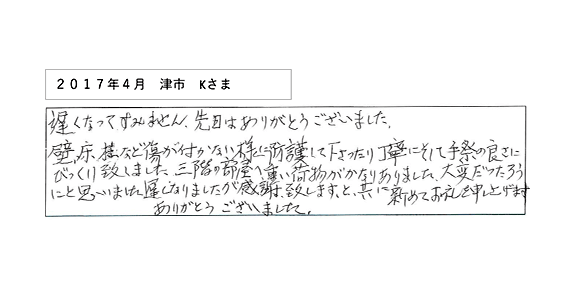 2017年4月 津市 Kさま
遅くなってすみません、先日はありがとうございました。
壁、床、柱など傷が付かない様に防護して下さったり丁寧にそして手際の良さに
びっくり致しました、三階の部屋へ重い荷物がかなりありました、大変だったろう
にと思いました遅くなりましたが感謝致しますと、共に新めてお礼を申し上げます
ありがとうございました。